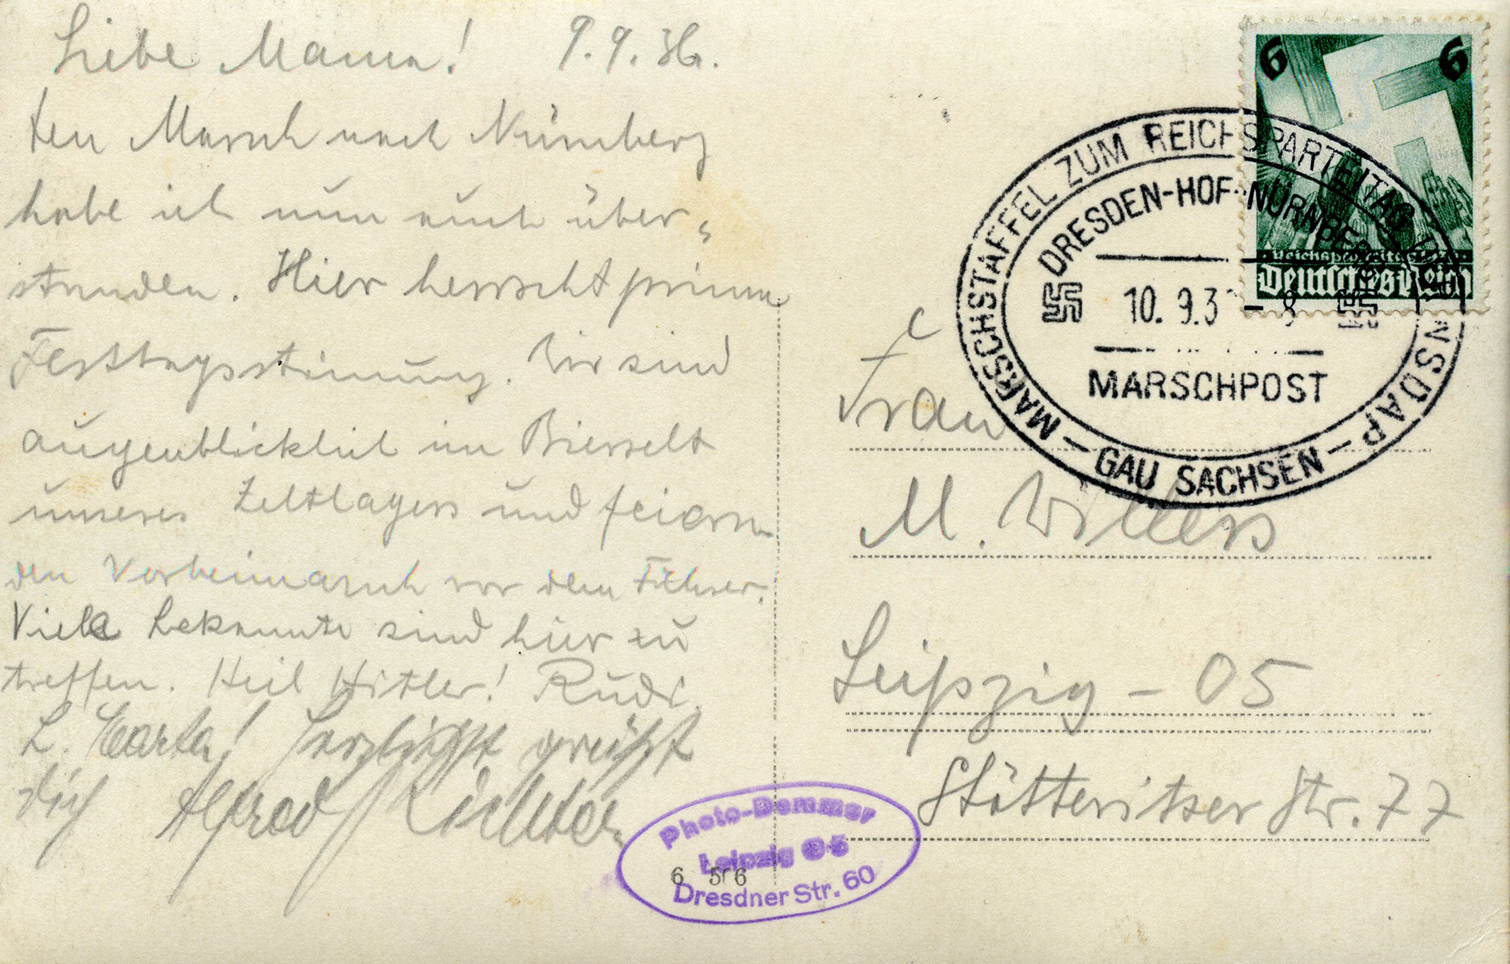 Liebe Mama! 9.9.36.
den Marsch nach Nürnberg
habe ich nun auch über„
standen. Hier herrscht prima
Festtagsstimmung. Wir sind
augenblicklich im Bierzelt
unseres Zeltlagers und feiern
den Vorbeimarsch vor dem Führer.
Viele Bekannte sind hier zu
treffen. Heil Hitler! Rudi.
L. Marta! Herzlichst grüßt
dich Alfred Richter
6 6
Reichsparteitag
Deutsches Reich
MARSCHSTAFFEL ZUM REICHSPARTEITAG DER NSDAP
DRESDEN-HOF-NÜRNBERG
10.9.3 - 8
MARSCHPOST
GAU SACHSEN
Frau
M. Willers
Leipzig - O5
Stötteritzer Str. 77
Photo-Dammer
Leipzig O5
6 506
Dresdner Str. 60